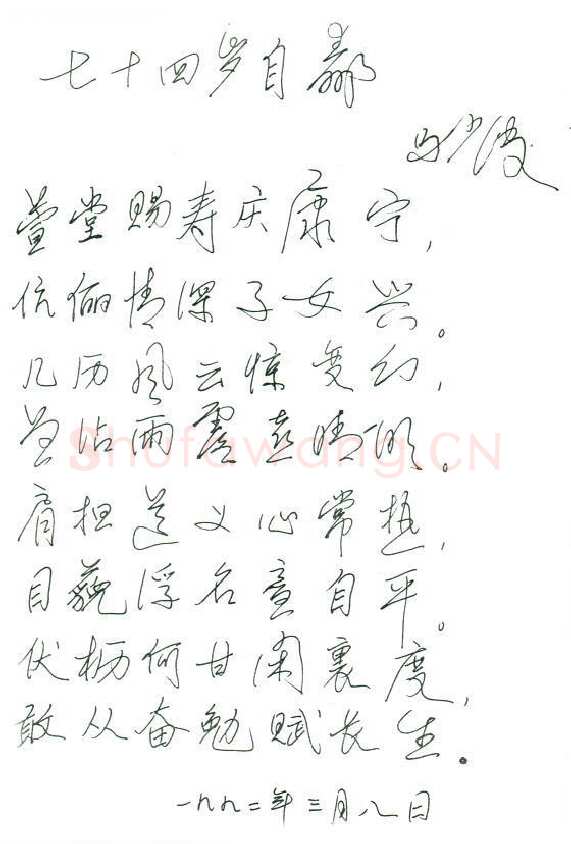 七十四岁自
马少波
萱堂赐寿庆康宁，
伉俪情深子女兴。
几历风云惊变幻，
沾雨露喜晴。
Shufawang.CN
肩担道义心常热，
目藐浮名意自平。
伏枥何甘闲裏度，
敢从奋勉赋长生。
一九九二年三月八日